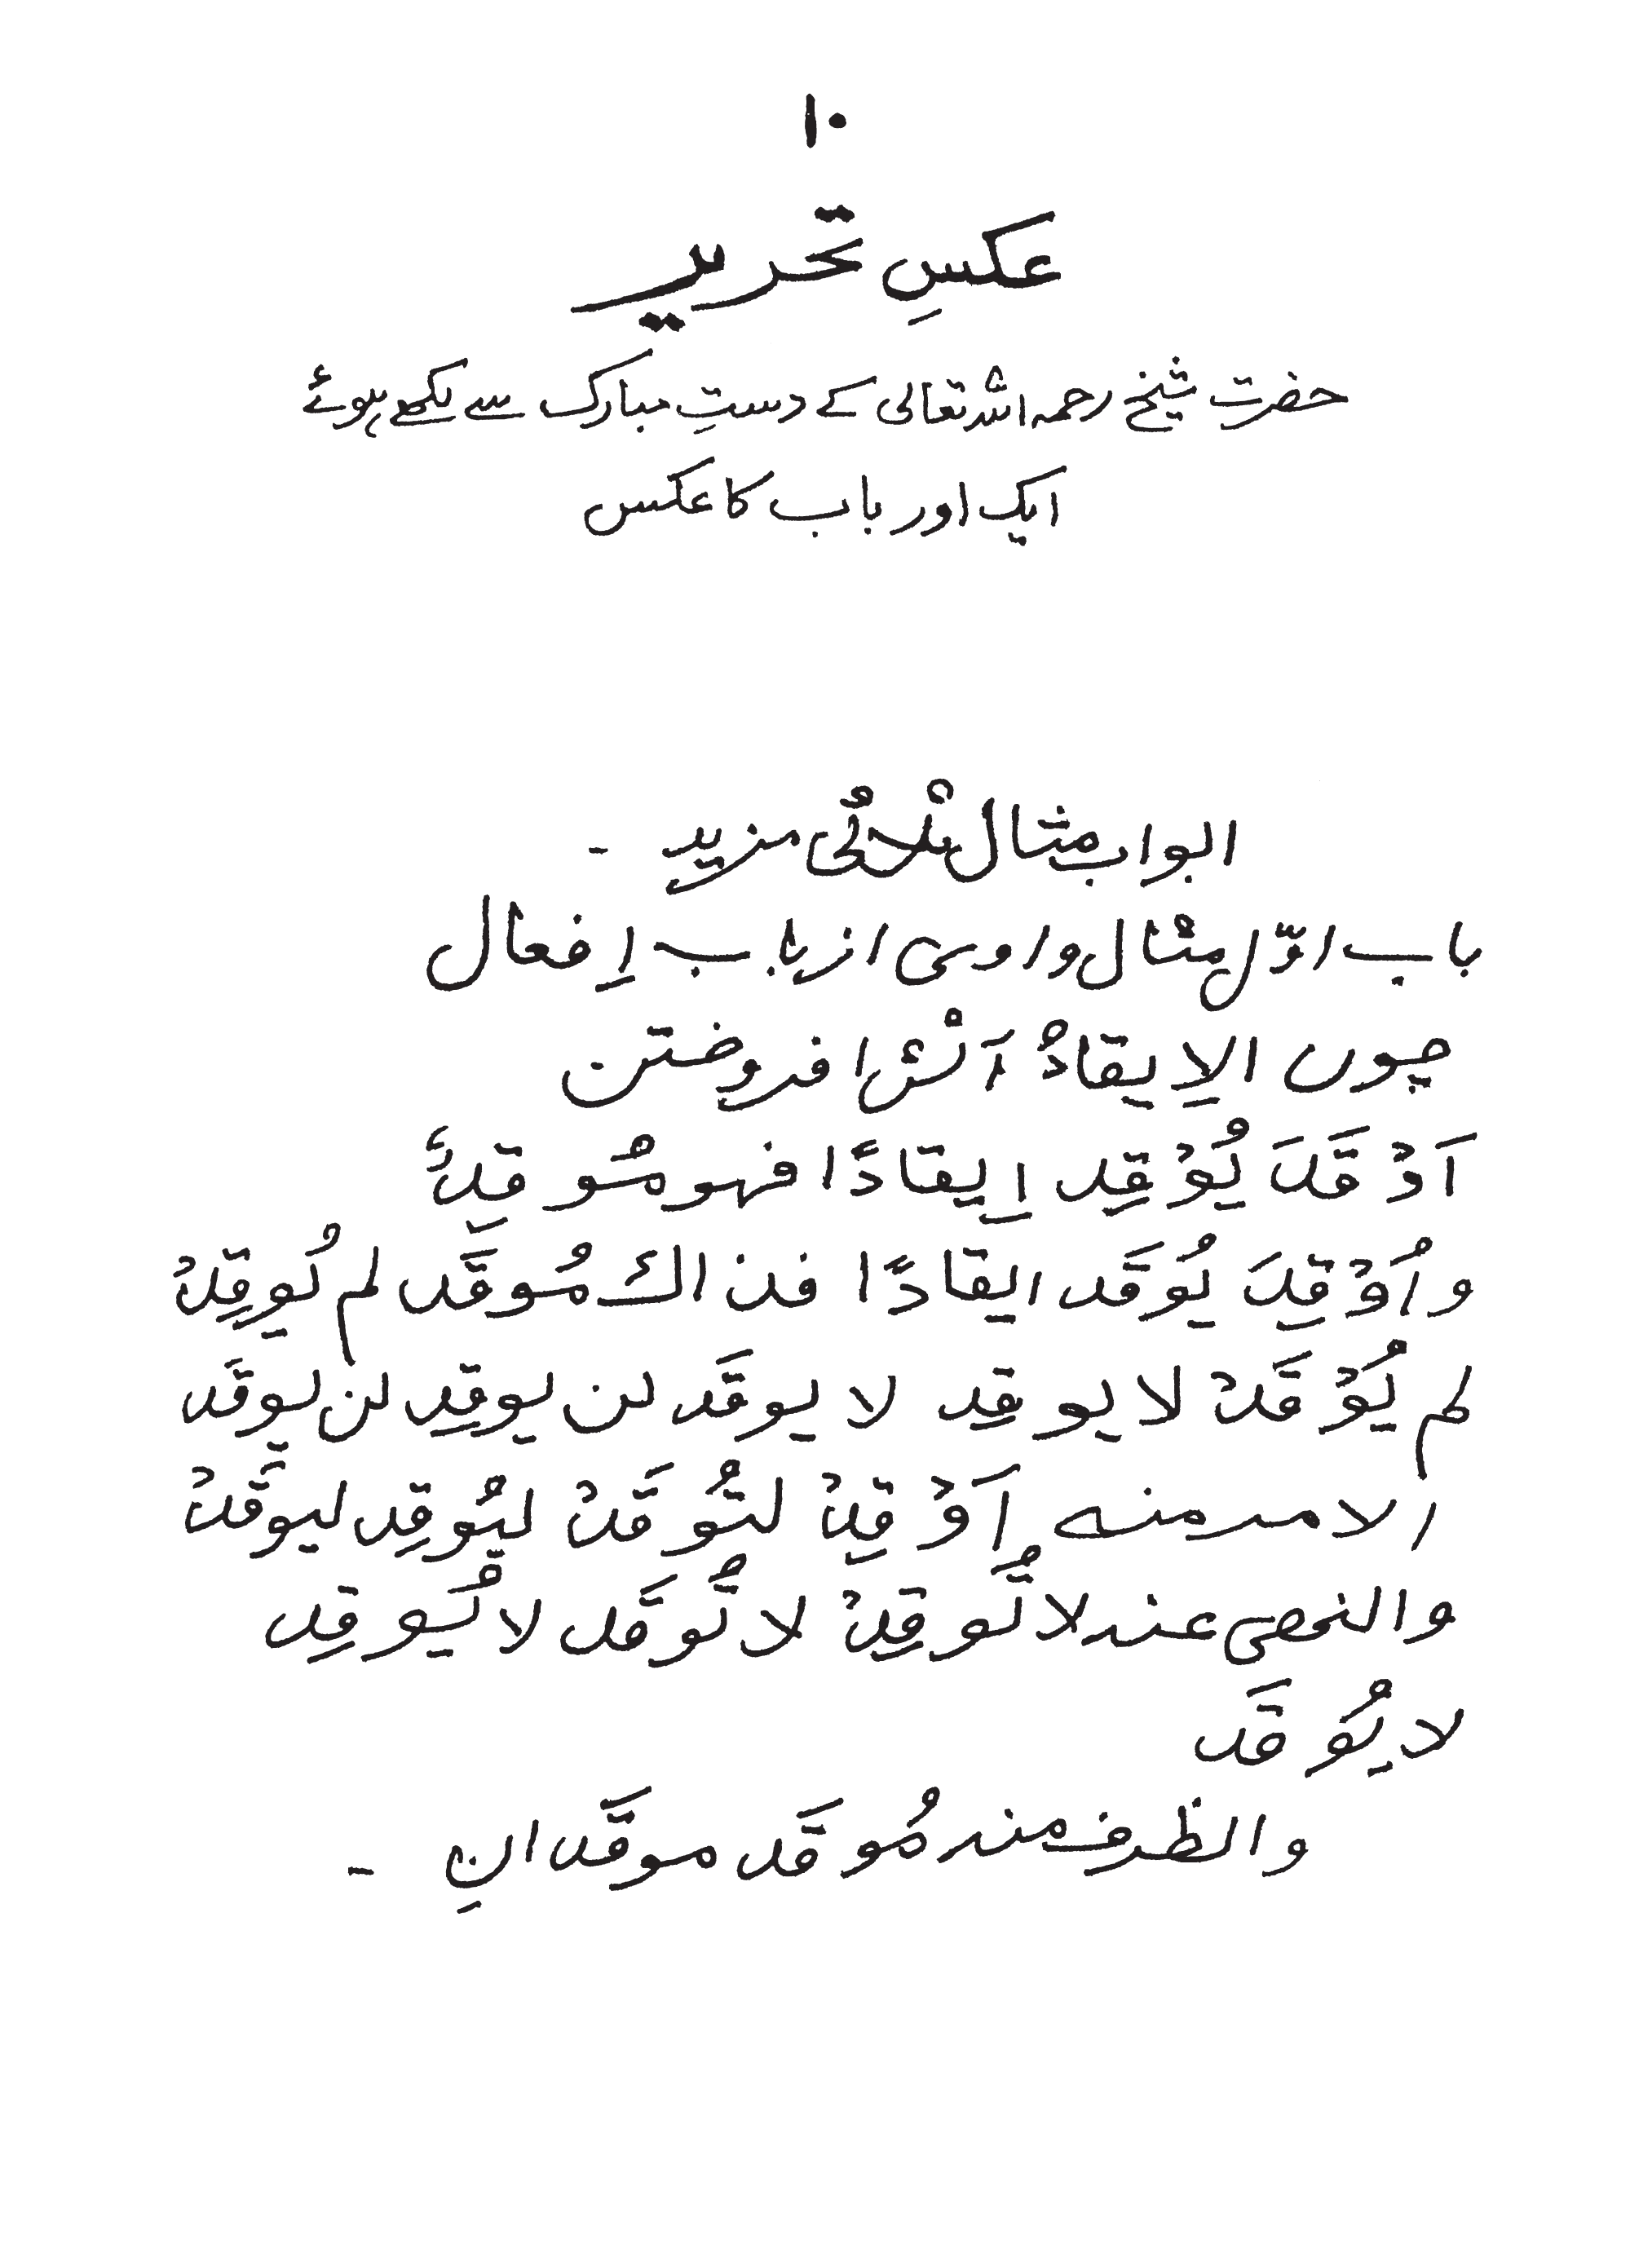 ۱۰
عکسِ تحریر
حضرت شیخ رحمہ اللہ تعالی کے دستِ مبارک سے لکھے ہوئے
ایک اور باب کا عکس
ابواب مثال ثلاثی مزید ۔
باب اوّل مثال واوی از باب اِفعال
چوں الاِیقادُ آتش افروختن
اَوْقَدَ یُوْقِد اِیقادًا فہو مُوقِدٌ
و اُوْقِدَ یُوقَد ایقادًا فذاك مُوقَد لم یُوقِدْ
لم یُوْقَدْ لا یوقِد لا یوقَد لن یوقِد لن یوقَد
الامر منہ اَوْقِدْ لتُوقَدْ لیُوقِد لیوقَدْ
والنھی عنہ لا تُوقِدْ لا تُوقَد لا یُوقِد
لا یُوقَد
والظرف منہ مُوقَد موقَدانِ ۔